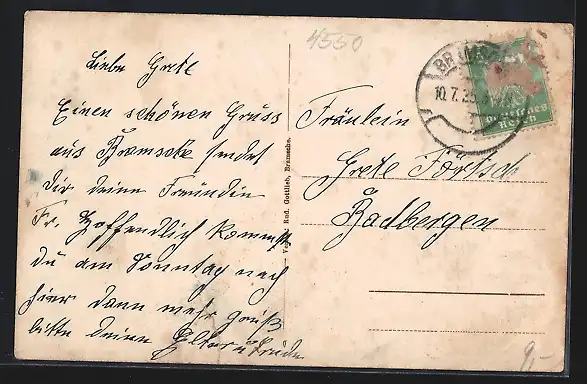 4550
Liebe Grete
Einen schönen Gruss
aus Bramsche sendet
dir deine Freundin
Fr. Hoffendlich kommst
du am Sonntag nach
hier dann mehr grüß
bitte deine Eltern u Frieda
Verlag Rud. Gottlieb, Bramsche.
BRAMSCHE
10.7.25
Deutsches
Reich
Fräulein
Grete Förtsch
Badbergen
9,-